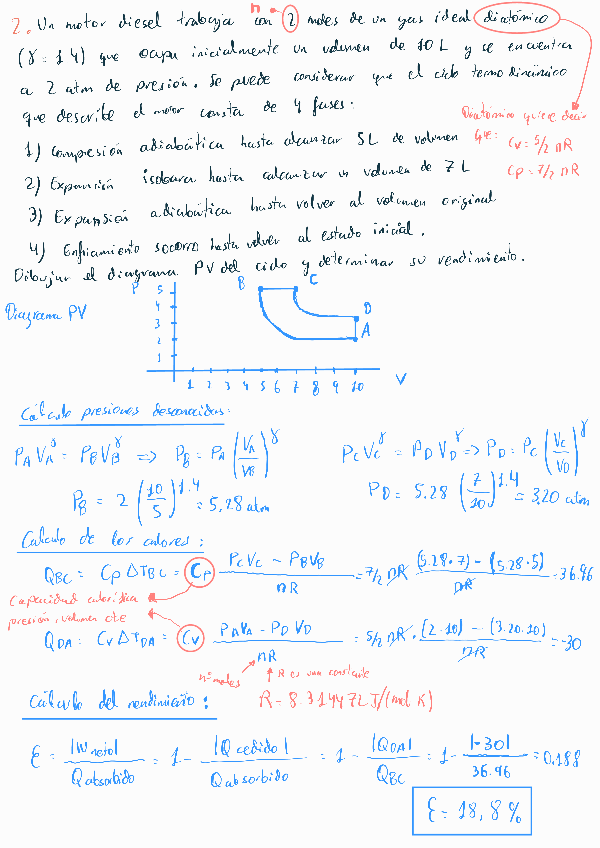 n
2. Un motor diesel trabaja con 2 moles de un gas ideal diatómico
(γ = 1.4) que ocupa inicialmente un volumen de 10 L y se encuentra
a 2 atm de presión. Se puede considerar que el ciclo termodinámico
que describe el motor consta de 4 fases:
Diatómico quiere decir
que: Cv = 5/2 nR
Cp = 7/2 nR
1) Compresión adiabática hasta alcanzar 5L de volumen
2) Expansión isobara hasta alcanzar un volumen de 7 L
3) Expansión adiabática hasta volver al volumen original
4) Enfriamiento isocoro hasta volver al estado inicial.
Dibujar el diagrama PV del ciclo y determinar su rendimiento.
Diagrama PV
P
5
4
3
2
1
B C
D
A
1 2 3 4 5 6 7 8 9 10
V
Cálculo presiones desconocidas:
P_A V_A^γ = P_B V_B^γ => P_B = P_A (V_A/V_B)^γ
P_B = 2 (10/5)^1.4 = 5,28 atm
P_C V_C^γ = P_D V_D^γ => P_D = P_C (V_C/V_D)^γ
P_D = 5.28 (7/10)^1.4 = 3,20 atm
Calculo de los calores:
Q_BC = Cp ΔT_BC = Cp (P_C V_C - P_B V_B)/nR = 7/2 nR ((5.28·7) - (5.28·5))/nR = 36.96
Capacidad calorífica
presión, volumen cte
Q_DA = Cv ΔT_DA = Cv (P_A V_A - P_D V_D)/nR = 5/2 nR · ((2·10) - (3.20·10))/nR = -30
nº moles
R es una constante
R = 8.314472 J/(mol K)
Cálculo del rendimiento:
ε = |W neto|/Q absorbido = 1 - |Q cedido|/Q absorbido = 1 - |Q_DA|/Q_BC = 1 - |-30|/36.96 = 0.188
ε = 18,8 %